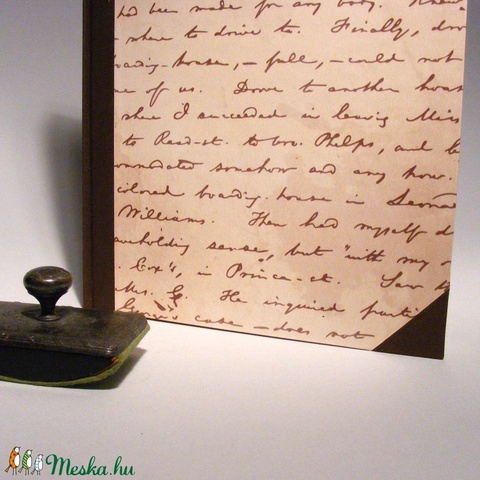 had been made for any body.
where to drive to. Finally, dro
boarding-house, – full, – could not
me of us. Drove to another hous
where I succeeded in leaving Miss
to Read-st. to bro. Phelps, and b
ommodated somehow and any how.
colored boarding-house in Leona
Williams. Then had myself d
aveholding sense, but "with my o
. Cox's, in Prince-st. Saw th
Mrs. G. He inquired parti
George's case – does not
Meska.hu